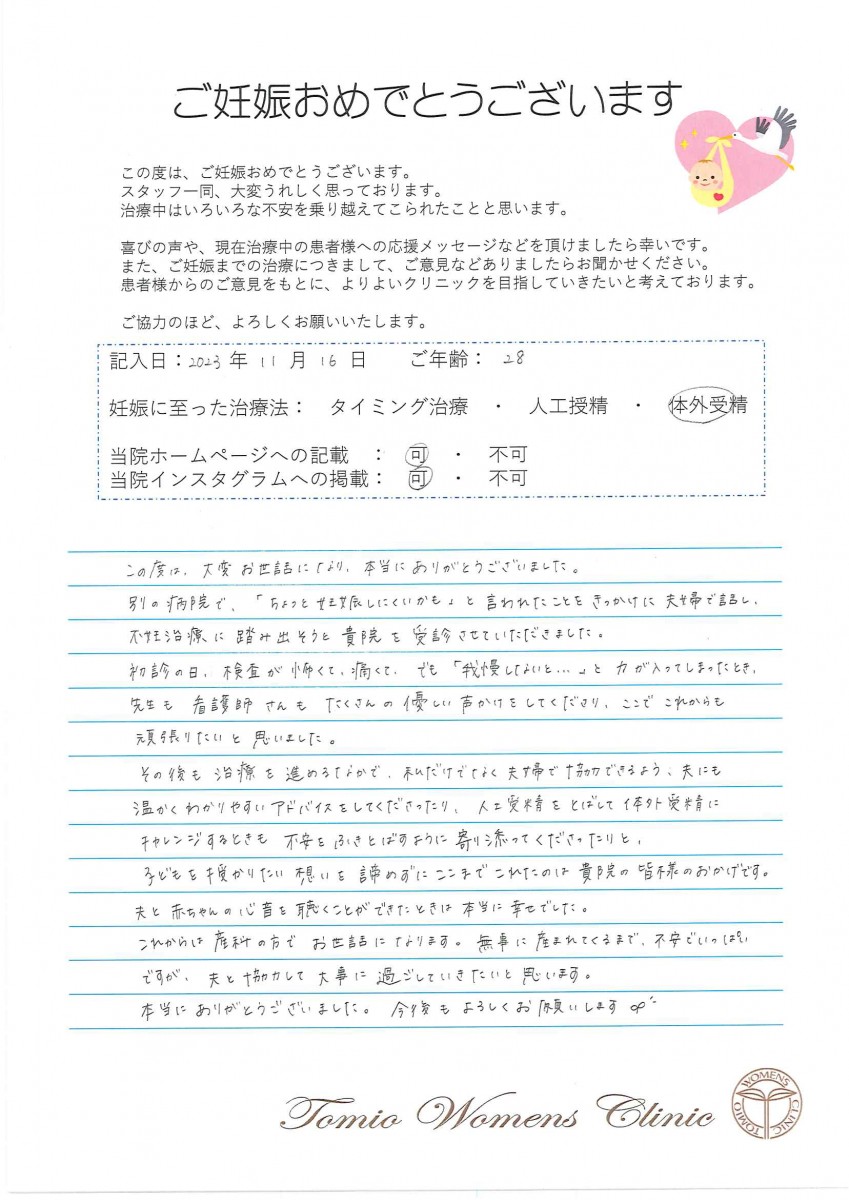 ご妊娠おめでとうございます
この度は、ご妊娠おめでとうございます。
スタッフ一同、大変うれしく思っております。
治療中はいろいろな不安を乗り越えてこられたことと思います。
喜びの声や、現在治療中の患者様への応援メッセージなどを頂けましたら幸いです。
また、ご妊娠までの治療につきまして、ご意見などありましたらお聞かせください。
患者様からのご意見をもとに、よりよいクリニックを目指していきたいと考えております。
ご協力のほど、よろしくお願いいたします。
記入日：2023 年 11 月 16 日 ご年齢： 28
妊娠に至った治療法： タイミング治療 ・ 人工授精 ・ 体外受精
当院ホームページへの記載 ： 可 ・ 不可
当院インスタグラムへの掲載： 可 ・ 不可
この度は、大変お世話になり、本当にありがとうございました。
別の病院で、「ちょっと妊娠しにくいかも」と言われたことをきっかけに夫婦で話し、
不妊治療に踏み出そうと貴院を受診させていただきました。
初診の日、検査が怖くて、痛くて、でも「我慢しないと…」と力が入ってしまったとき、
先生も看護師さんもたくさんの優しい声かけをしてくださり、ここでこれからも
頑張りたいと思いました。
その後も治療を進めるなかで、私だけでなく夫婦で協力できるよう、夫にも
温かくわかりやすいアドバイスをしてくださったり、人工受精をとばして体外受精に
チャレンジするときも不安をふきとばすように寄り添ってくださったりと、
子どもを授かりたい想いを諦めずにここまでこれたのは貴院の皆様のおかげです。
夫と赤ちゃんの心音を聴くことができたときは本当に幸せでした。
これからは産科の方でお世話になります。無事に産まれてくるまで、不安でいっぱい
ですが、夫と協力して大事に過ごしていきたいと思います。
本当にありがとうございました。今後もよろしくお願いします
Tomio Womens Clinic
TOMIO WOMENS CLINIC